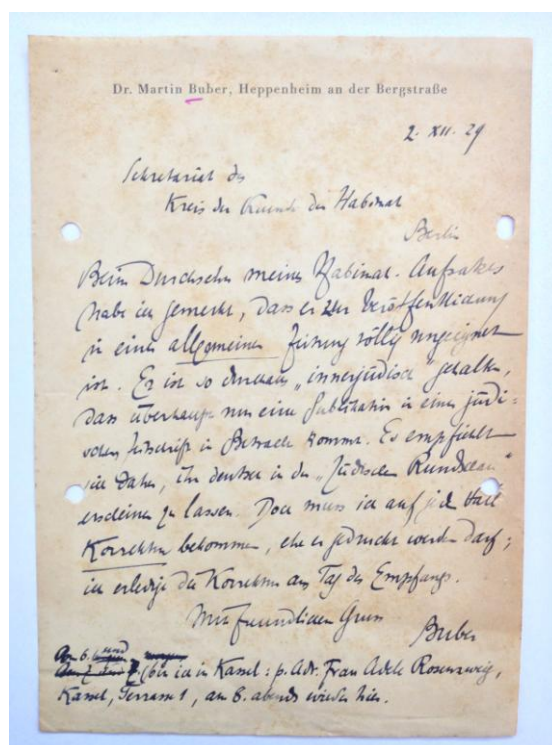 Dr. Martin Buber, Heppenheim an der Bergstraße
2. XII. 29
Sekretariat des
Kreis der Freunde der Habimah
Berlin
Beim Durchsehn meines Habimah-Aufsatzes
habe ich gemerkt, dass er zur Veröffentlichung
in einer allgemeinen Zeitung völlig ungeeignet
ist. Er ist so durchaus „innerjüdisch" gehalten,
dass überhaupt nur eine Publikation in einer jüdi-
schen Zeitschrift in Betracht kommt. Es empfiehlt
sich daher, ihn deutsch in der „Jüdischen Rundschau"
erscheinen zu lassen. Doch muss ich auf jed. Fall
Korrektur bekommen, ehe er gedruckt werden darf;
ich erledige die Korrektur am Tag des Empfangs.
Mit freundlichem Gruss
Buber
Am 6. und
7. bin ich in Kassel: p. Adr. Frau Adele Rosenzweig,
Kassel, Terrasse 1, am 8. abends wieder hier.